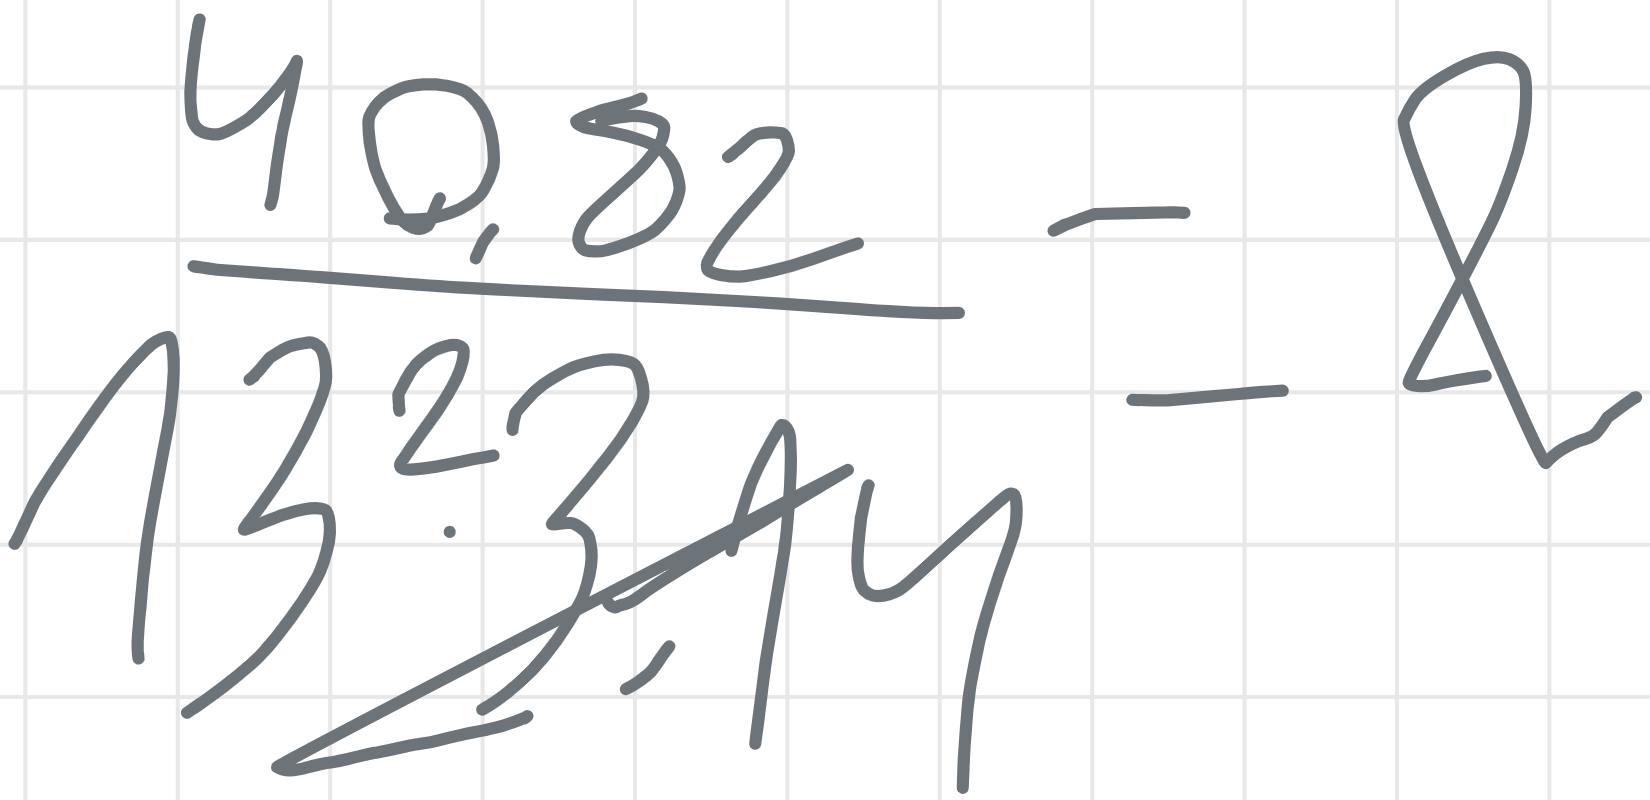 40,82
13² · 3,14 = α